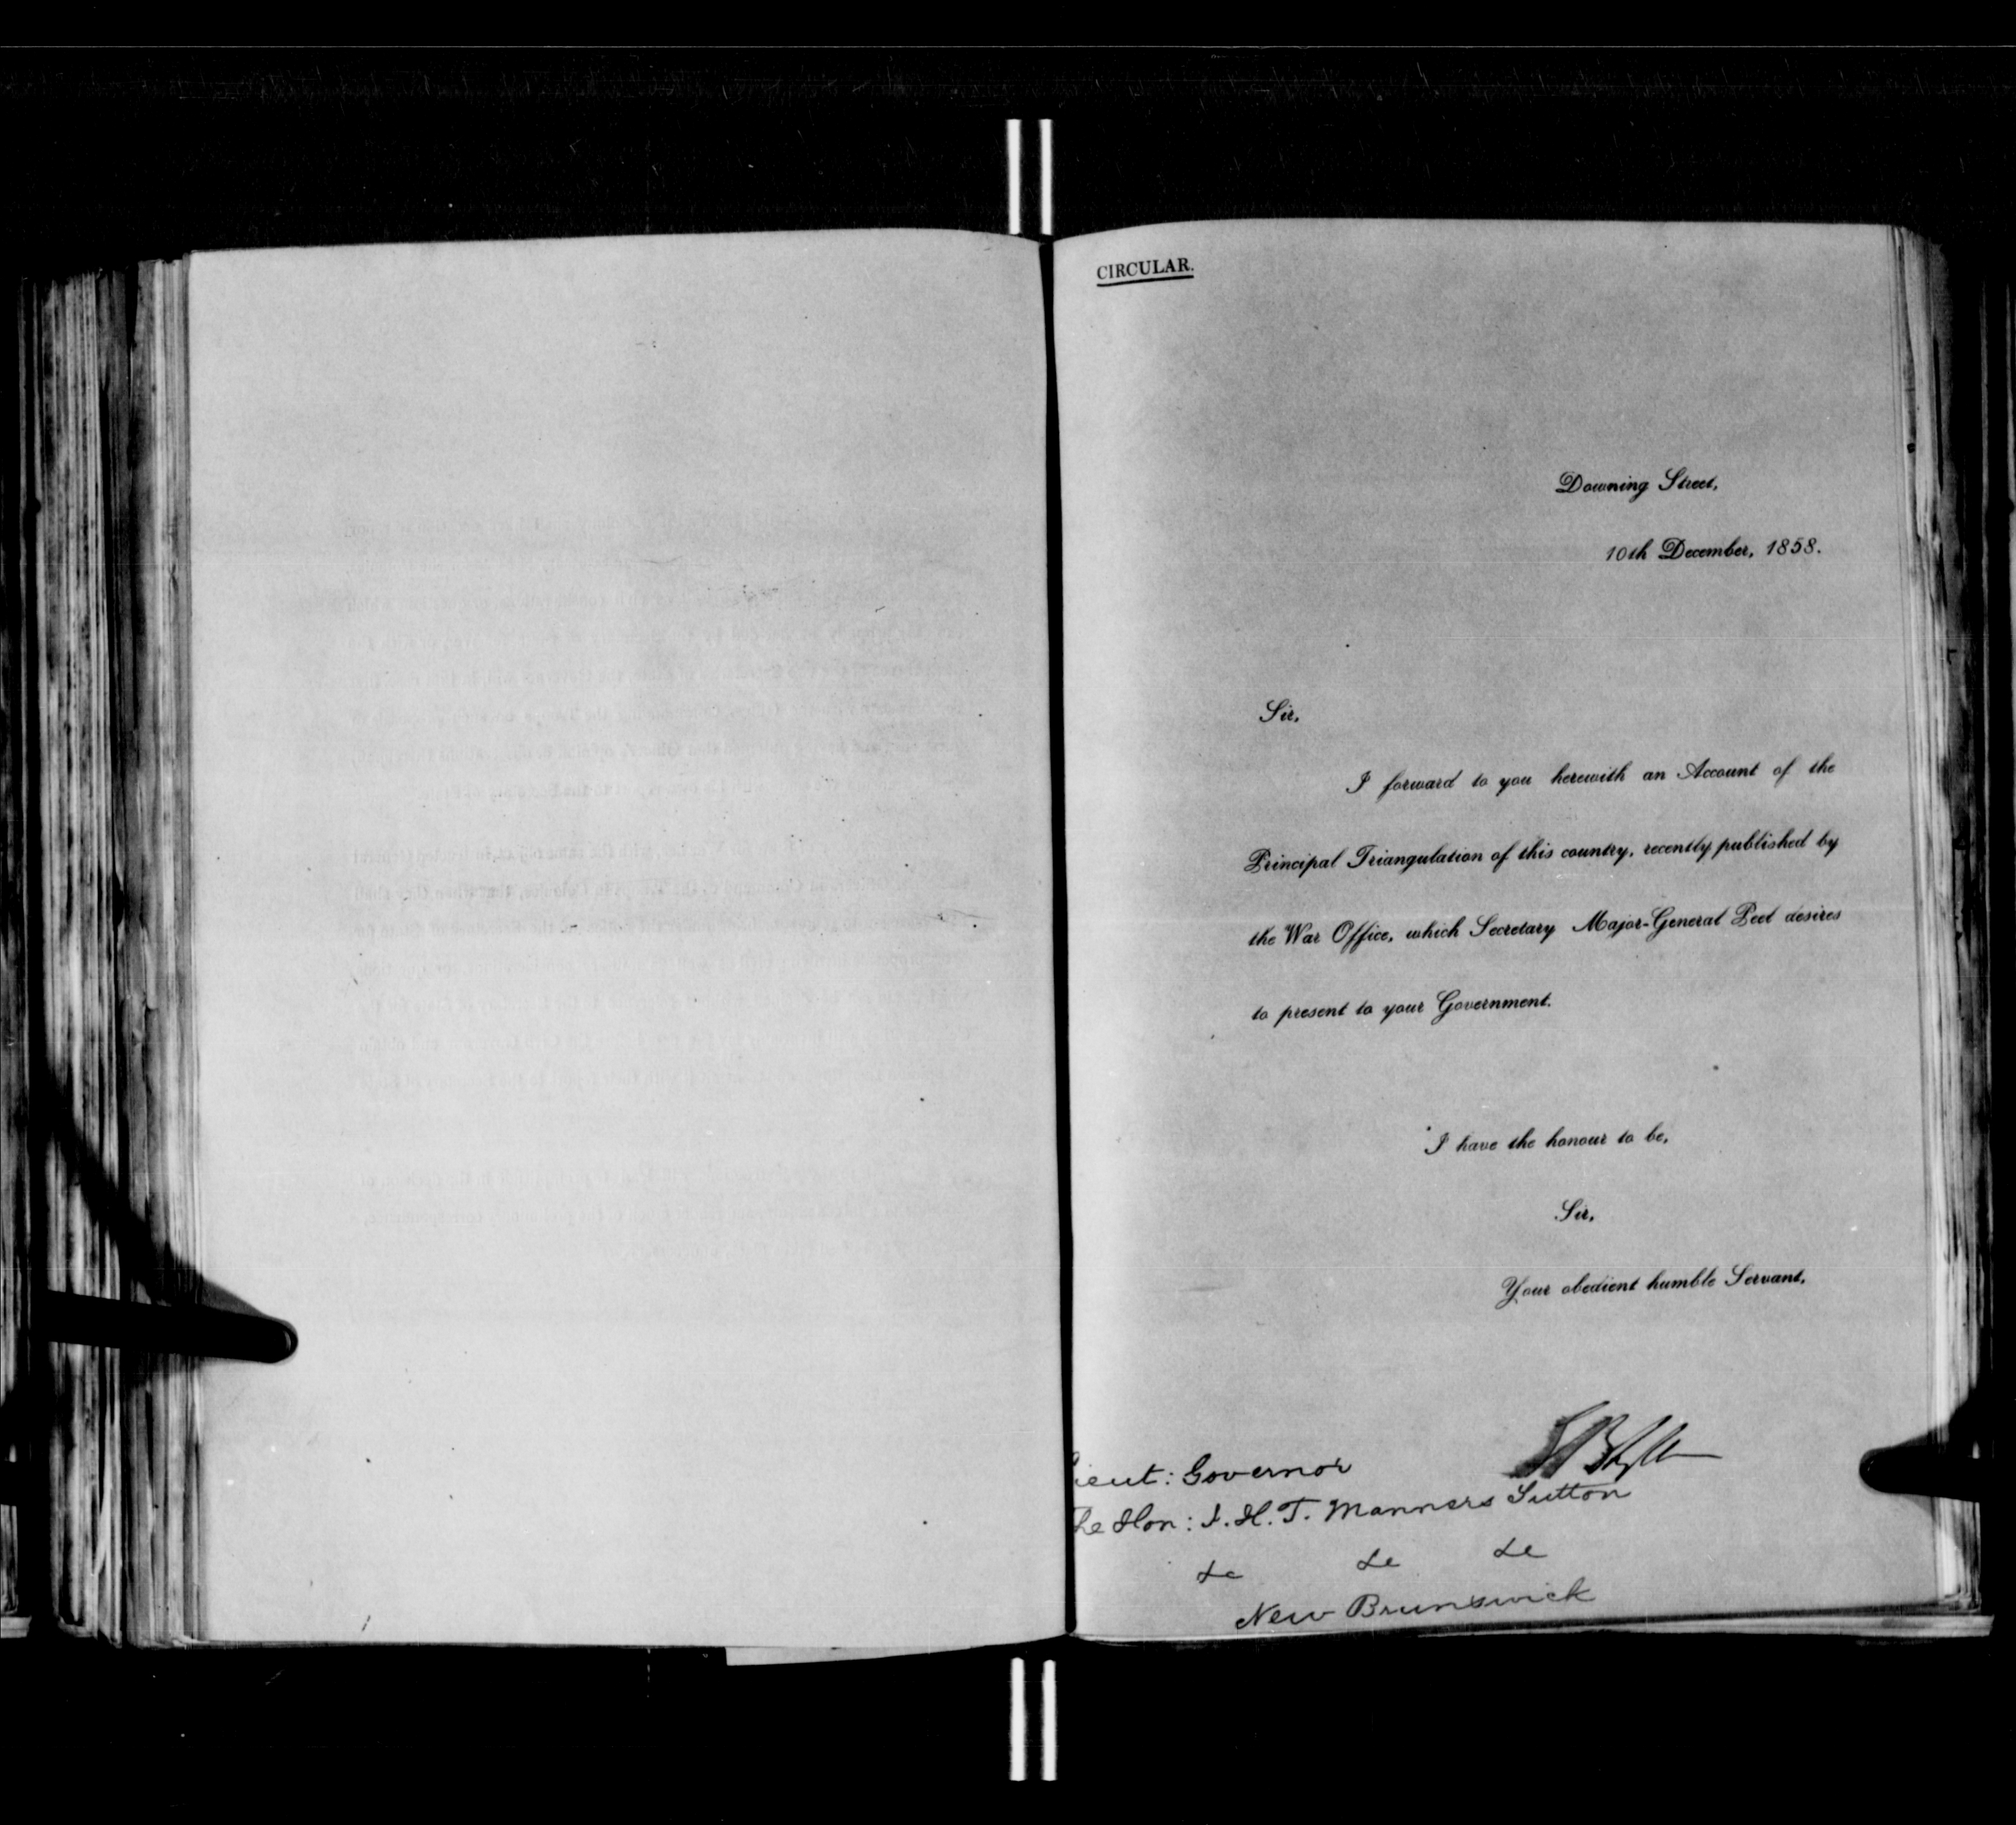 CIRCULAR.
Downing Street,
10th December, 1858.
Sir,
I forward to you herewith an Account of the
Principal Triangulation of this country, recently published by
the War Office, which Secretary Major-General Peel desires
to present to your Government.
I have the honour to be,
Sir,
Your obedient humble Servant,
Lieut: Governor
The Hon: J. H. T. Manners Sutton
&c &c &c
New Brunswick